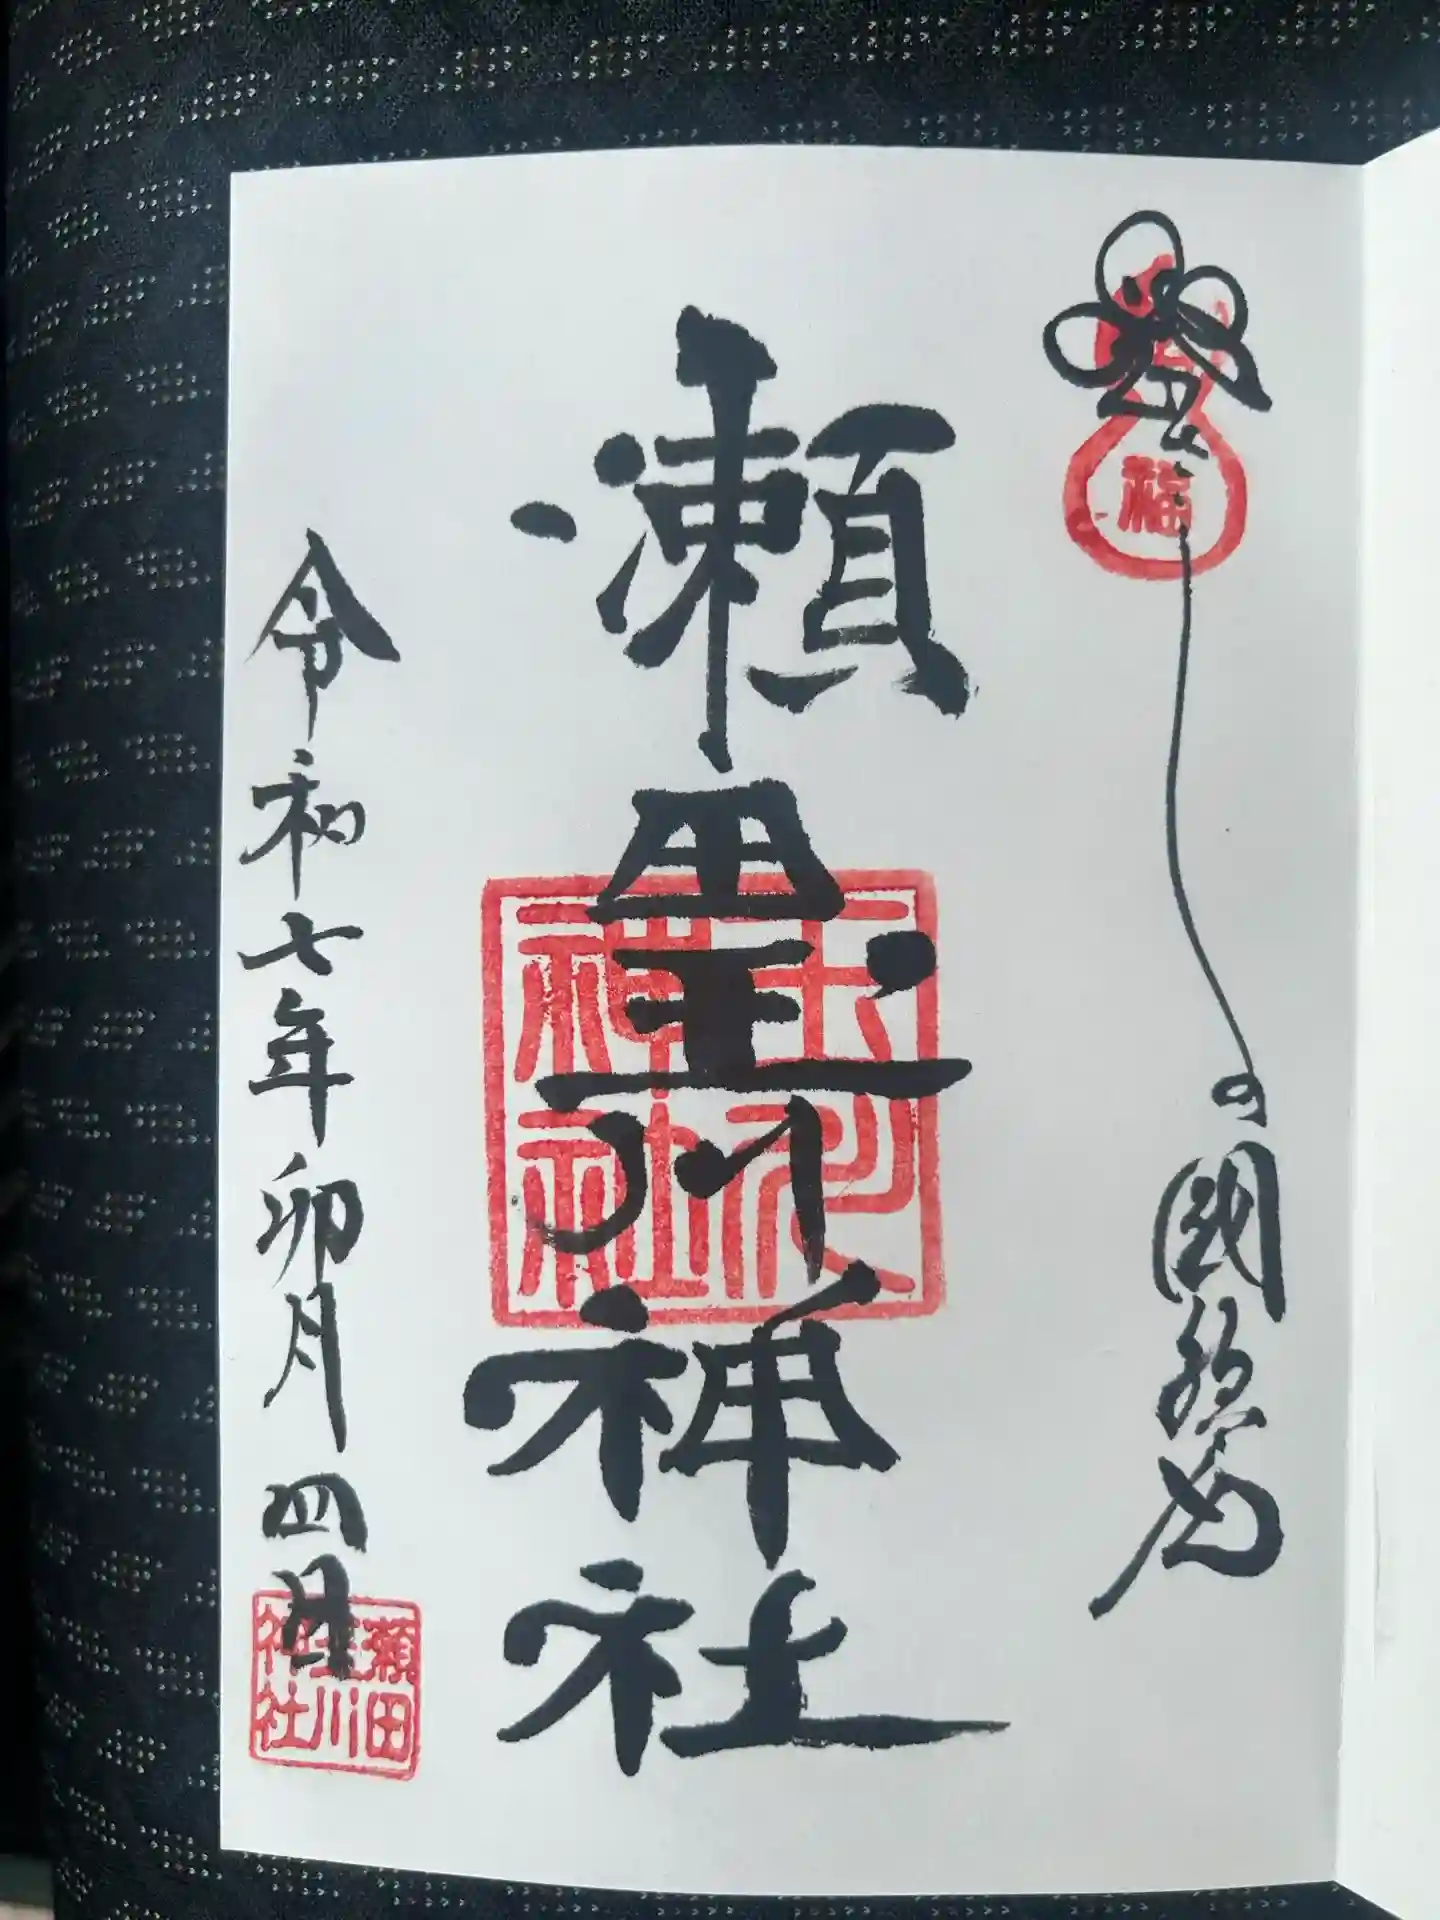 福
瀬田玉川神社
玉川神社
令和七年卯月四日
瀬田玉川神社